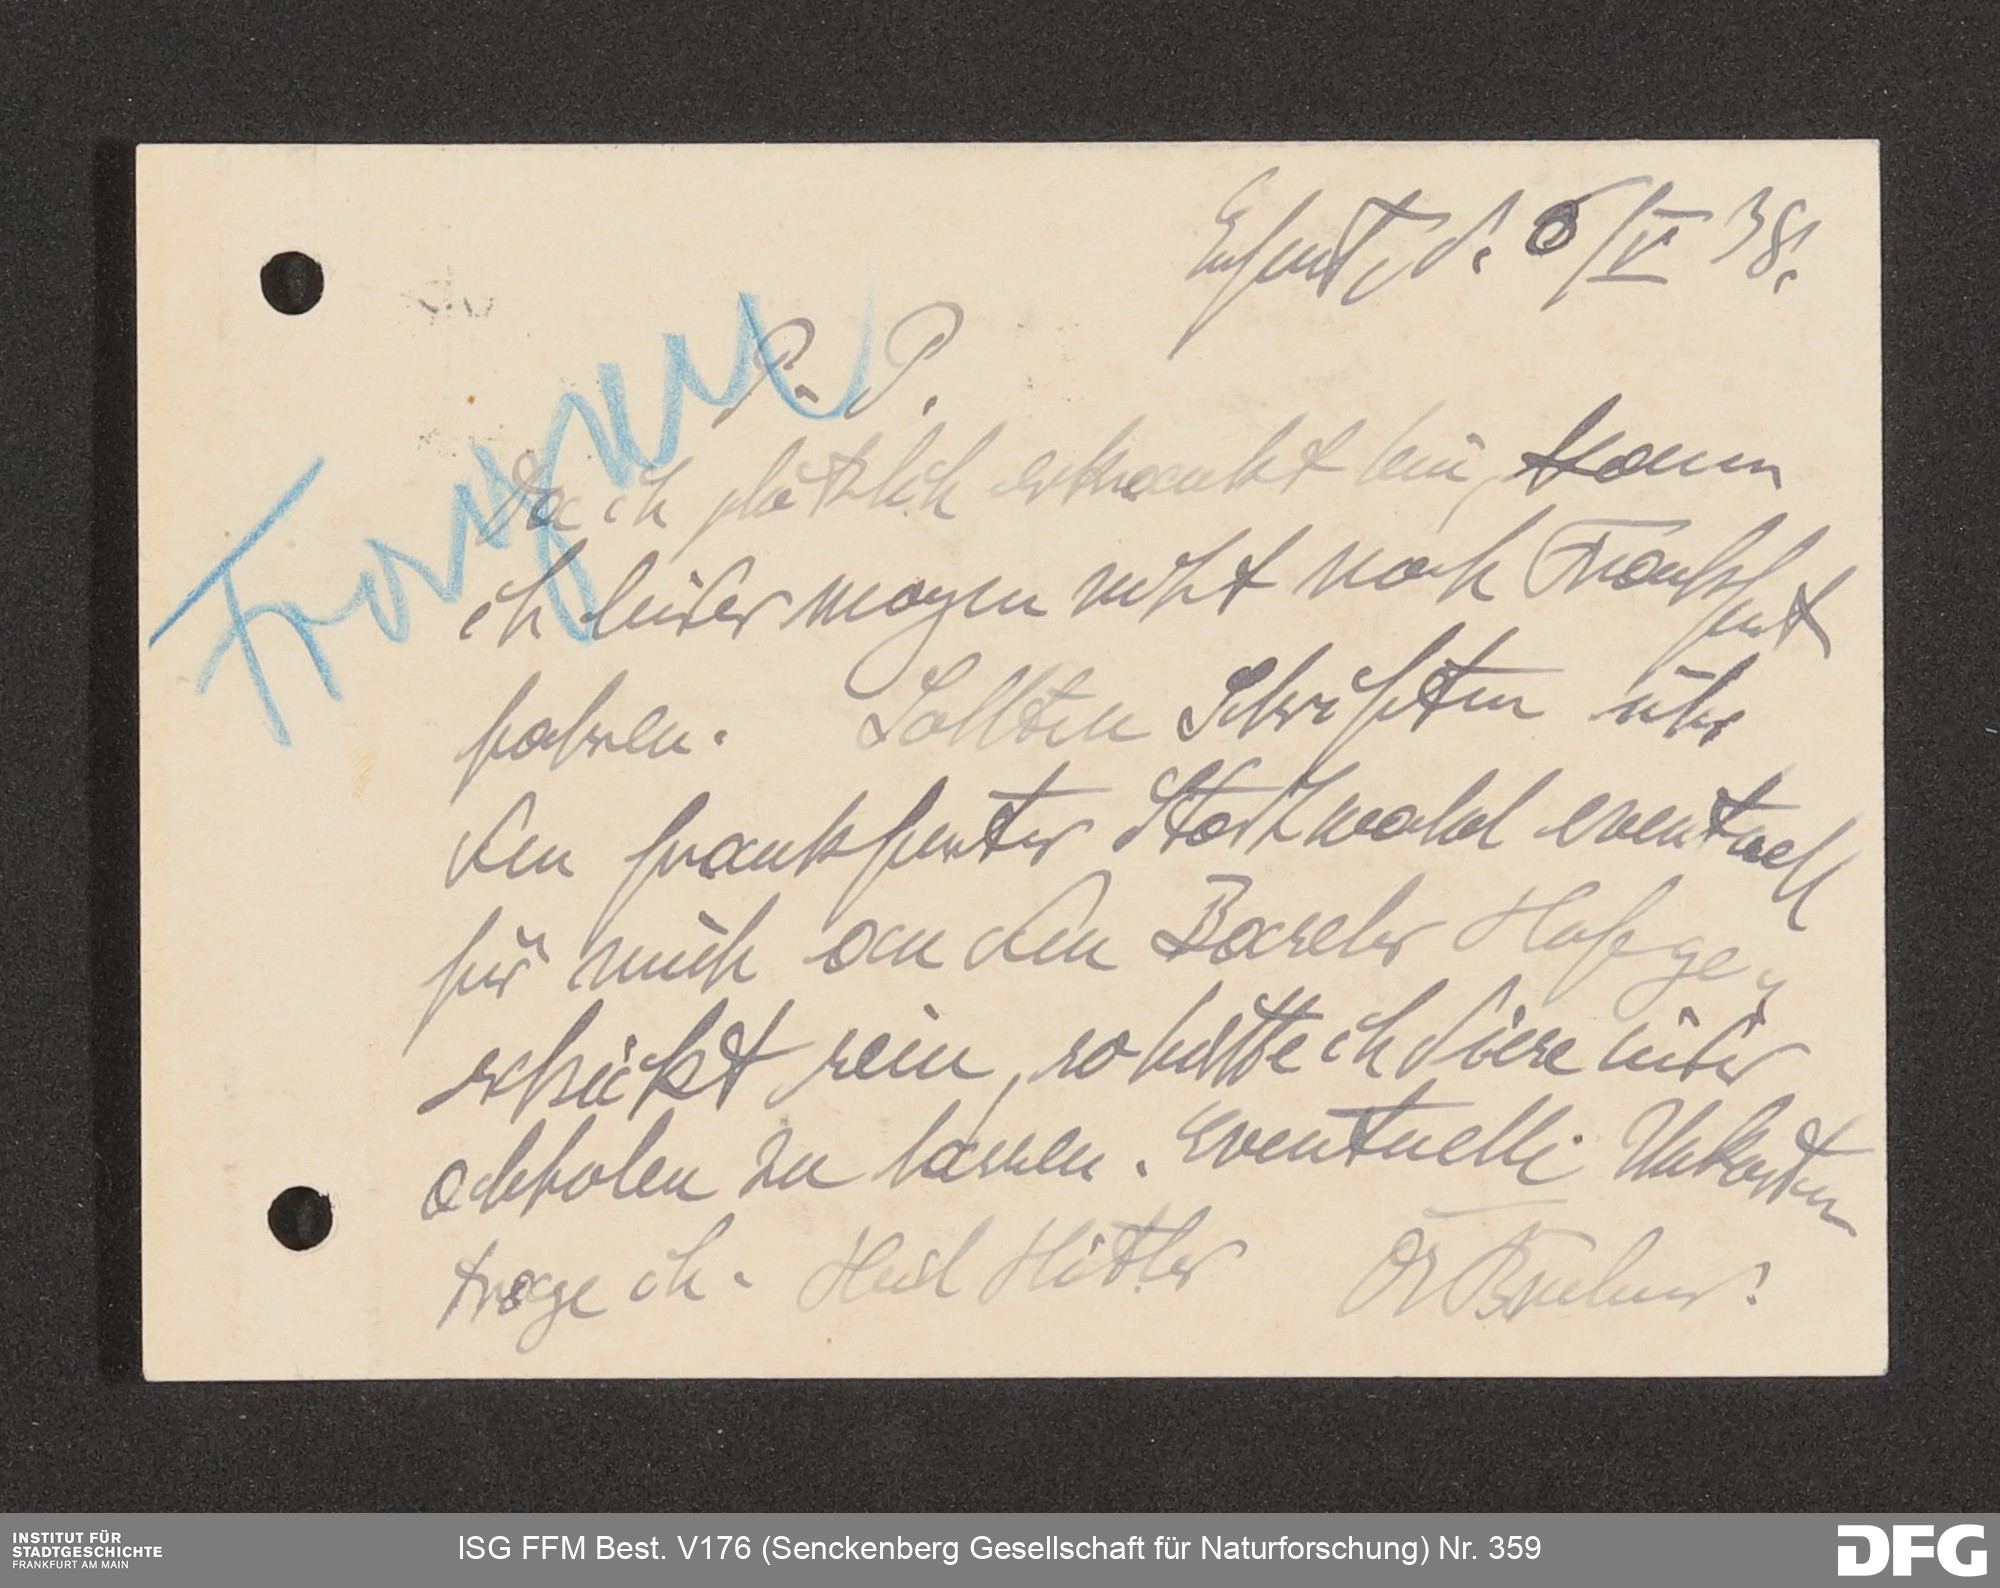 Erfurt, d. 6/V 38.
P. P.
Da ich plötzlich erkrankt bin, kann
ich leider morgen nicht nach Frankfurt
fahren. Sollten Schriften über
den Frankfurter Stadtwald eventuell
für mich an den Baseler Hof ge-
schickt sein, so bitte ich diese wieder
abholen zu lassen. Eventuelle Unkosten
trage ich. Heil Hitler Dr
INSTITUT FÜR
STADTGESCHICHTE
FRANKFURT AM MAIN
ISG FFM Best. V176 (Senckenberg Gesellschaft für Naturforschung) Nr. 359
DFG